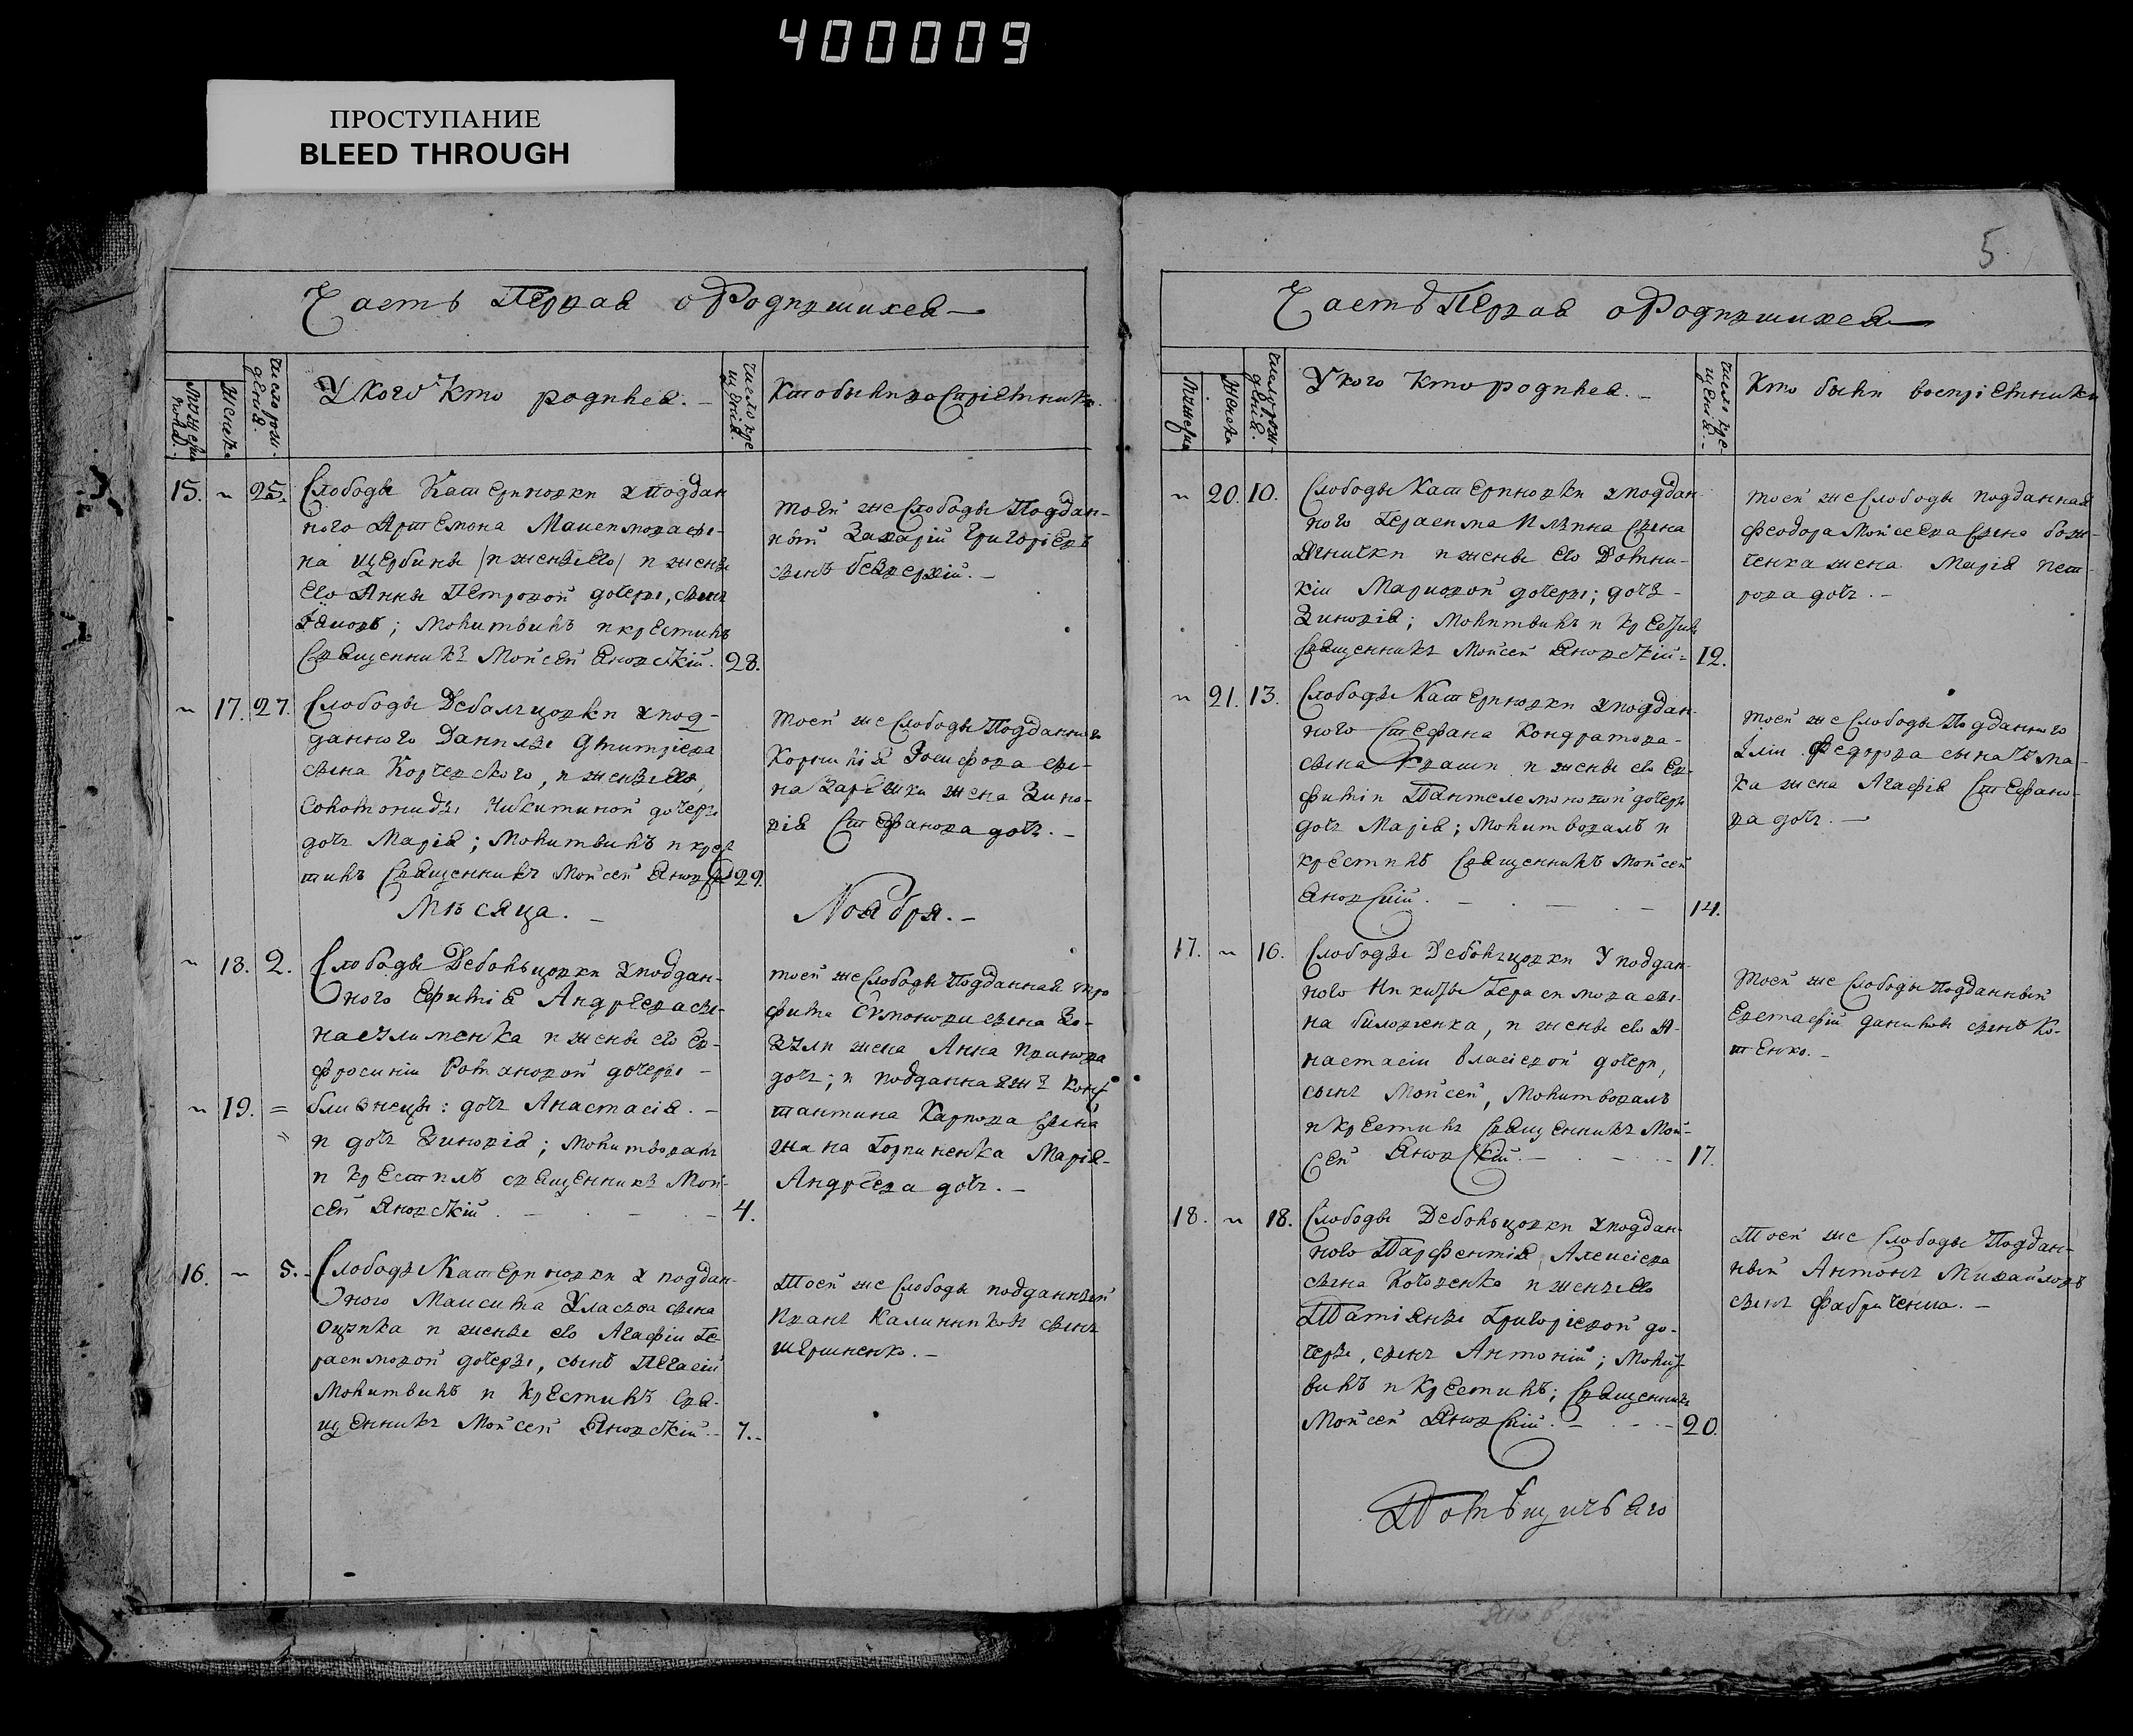 400009
ПРОСТУПАНИЕ
BLEED THROUGH
Часть Первая о Родившихся
Мужеска пола.
Женска
Число рождения.
У кого кто родился.
Число крещения.
Кто были восприемники.
15. 25. Слободы Катериновки у поддан
ного Артемона Максимова сы-
на Щербины /и жены его/ и жены
его Анны Петровой дочери, сынъ
Іаковъ; Молитвилъ и крестилъ
Священникъ Мойсей Яновскій. 28.
той же Слободы Поддан-
ный Захарій Григоріевъ
сынъ безверхій.
17. 27. Слободы Дебальцовки у под-
данного Данилы Дмитріева
сына Корчевского, и жены его,
Соломониды Никитиной дочери
дочь Марія; Молитвилъ и крес
тилъ Священникъ Мойсей 29.
той же Слободы Подданного
Корнилія сы-
на жена Зино-
вія Стефанова дочь.
Мѣсяца. Ноября.
18. 2. Слободы Дебольцовки у поддан-
ного Ефимія Андреева сы-
на и жены его Ев-
фросиніи Романовой дочери
19. близнецы: дочь Анастасія.
и дочь Зиновія; Молитвовалъ
и крестилъ священникъ Мой-
сей Яновскій. 4.
той же Слободы Подданная Тро
фима сына
жена Анна Иванова
дочь; и подданная жъ Конс
тантина Карпова сына
жена Марія
Андреева дочь.
16. 5. Слободы Катериновки у поддан-
ного Максима Власова сына
и жены его Агафіи Ге-
расимовой дочери, сынъ Пегасій
Молитвилъ и Крестилъ Свя-
щенникъ Мойсей Яновскій. 7.
Той же Слободы подданный
Иванъ Калинниковъ сынъ
5.
Часть Первая о Родившихся
Мужеска
Женска
Число рождения.
У кого кто родился.
Число крещения.
Кто были восприемники
20. 10. Слободы Катериновки у поддан-
ного Герасима Ильина сына
и жены его Домни-
кіи Марковой дочери; дочь
Зиновія; Молитвилъ и Крестилъ
Священникъ Мойсей Яновскій 12.
той же Слободы подданная
Феодора Мойсеева сына бож-
ченка жена Марія Пет-
рова дочь.
21. 13. Слободы Катериновки у поддан-
ного Стефана Кондратова
сына Кваши и жены его Ев-
фиміи Пантелемоновой дочери
дочь Марія; Молитвовалъ и
крестилъ Священникъ Мойсей
Яновскій. 14.
той же Слободы Подданного
Іліи Федорова сына Чма-
ка жена Агафія Стефано-
ва дочь.
17. 16. Слободы Дебольцовки У поддан
ного Никиты Герасимова сы-
на билоченка, и жены его А-
настасіи Власіевой дочери,
сынъ Мойсей, Молитвовалъ
и крестилъ Священникъ Мой-
сей Яновскій. 17.
Той же Слободы Подданный
Евстафій Даниловъ сынъ Ко-
тенко.
18. 18. Слободы Дебольцовки у поддан-
ного Парфентія Алексіева
сына Кочовенка и жены его
Татіаны Григоріевой до-
чери, сынъ Антоній; Молит
вилъ и Крестилъ; Священникъ
Мойсей Яновскій. 20.
Той же Слободы Поддан-
ный Антонъ Михайловъ
сынъ Фабриченко.